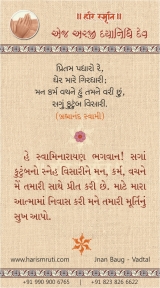 ॥ હરિ સ્મૃતિ ॥
એજ અરજી દયાનિધિ દેવ
પ્રિતમ પધારો રે,
ઘેર મારે ગિરધારી;
મન કર્મ વચને હું તમને વરી છું,
સગાં કુટુંબ વિસારી.
(પ્રેમાનંદ સ્વામી)
હે સ્વામિનારાયણ ભગવાન! સગાં
કુટુંબનો સ્નેહ વિસારીને મન, કર્મ, વચને
મેં તમારી સાથે પ્રીત કરી છે. માટે મારા
આત્મામાં નિવાસ કરી મને તમારી મૂર્તિનું
સુખ આપો.
www.harismruti.com
Jnan Baug - Vadtal
+91 990 900 6765
+91 823 826 6622